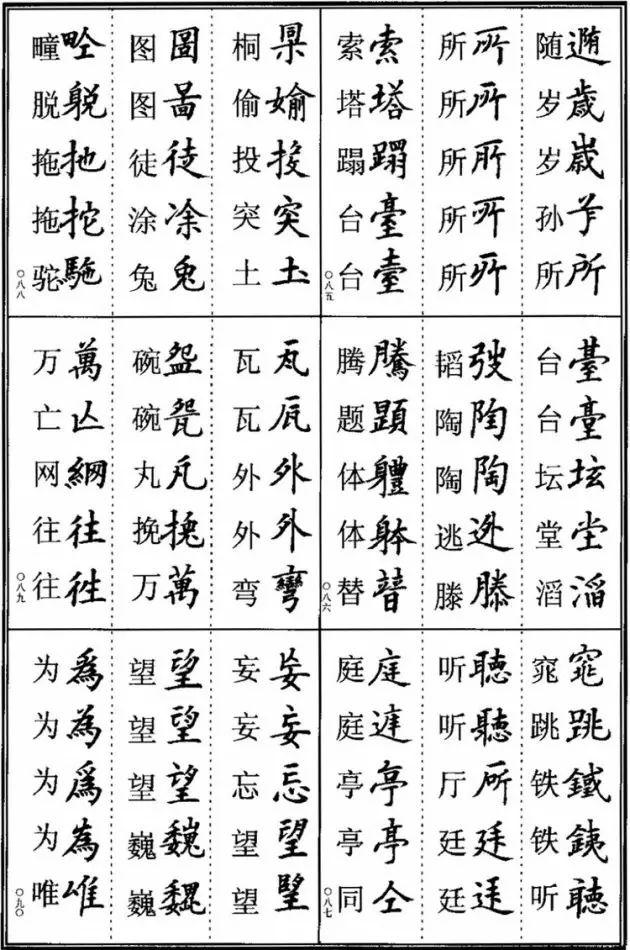 随遀
岁歳
岁嵗
孙
所所
所所
所所
所所
所所
所所
索索
塔塔
蹋蹋
台臺
台臺
〇八五
台臺
台臺
坛坛
堂坣
滔滔
韬弢
陶陶
陶陶
逃迯
滕滕
腾騰
题題
体軆
体躰
替朁
〇八六
窕窕
跳跳
铁鐵
铁銕
听聴
听聽
听聽
厅所
廷廷
廷
庭庭
庭
亭亭
亭亭
同仝
〇八七
桐
偷媮
投投
突突
土圡
图圖
图啚
徒徒
涂凃
兔兔
疃畻
脱躭
拖扡
拖拕
驼駞
〇八八
瓦瓦
瓦瓦
外外
外外
弯彎
碗盌
碗椀
丸凡
挽挽
万萬
万萬
亡亾
网網
往往
往徃
〇八九
妄妄
妄妄
忘忘
望望
望朢
望望
望望
望望
巍巍
巍巍
为為
为為
为爲
为為
唯唯
〇九〇